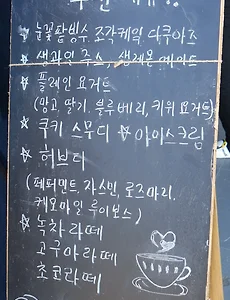 ☆ 눈꽃팥빙수, 조각케익, 다쿠아즈
☆ 생과일 주스, 생레몬에이드
☆ 플레인 요거트
(망고, 딸기, 블루베리, 키위 요거트)
☆ 쿠키 스무디 ☆ 아이스크림
☆ 허브티
(페퍼민트, 자스민, 로즈마리,
케모마일, 루이보스)
☆ 녹차라떼
고구마라떼
초코라떼